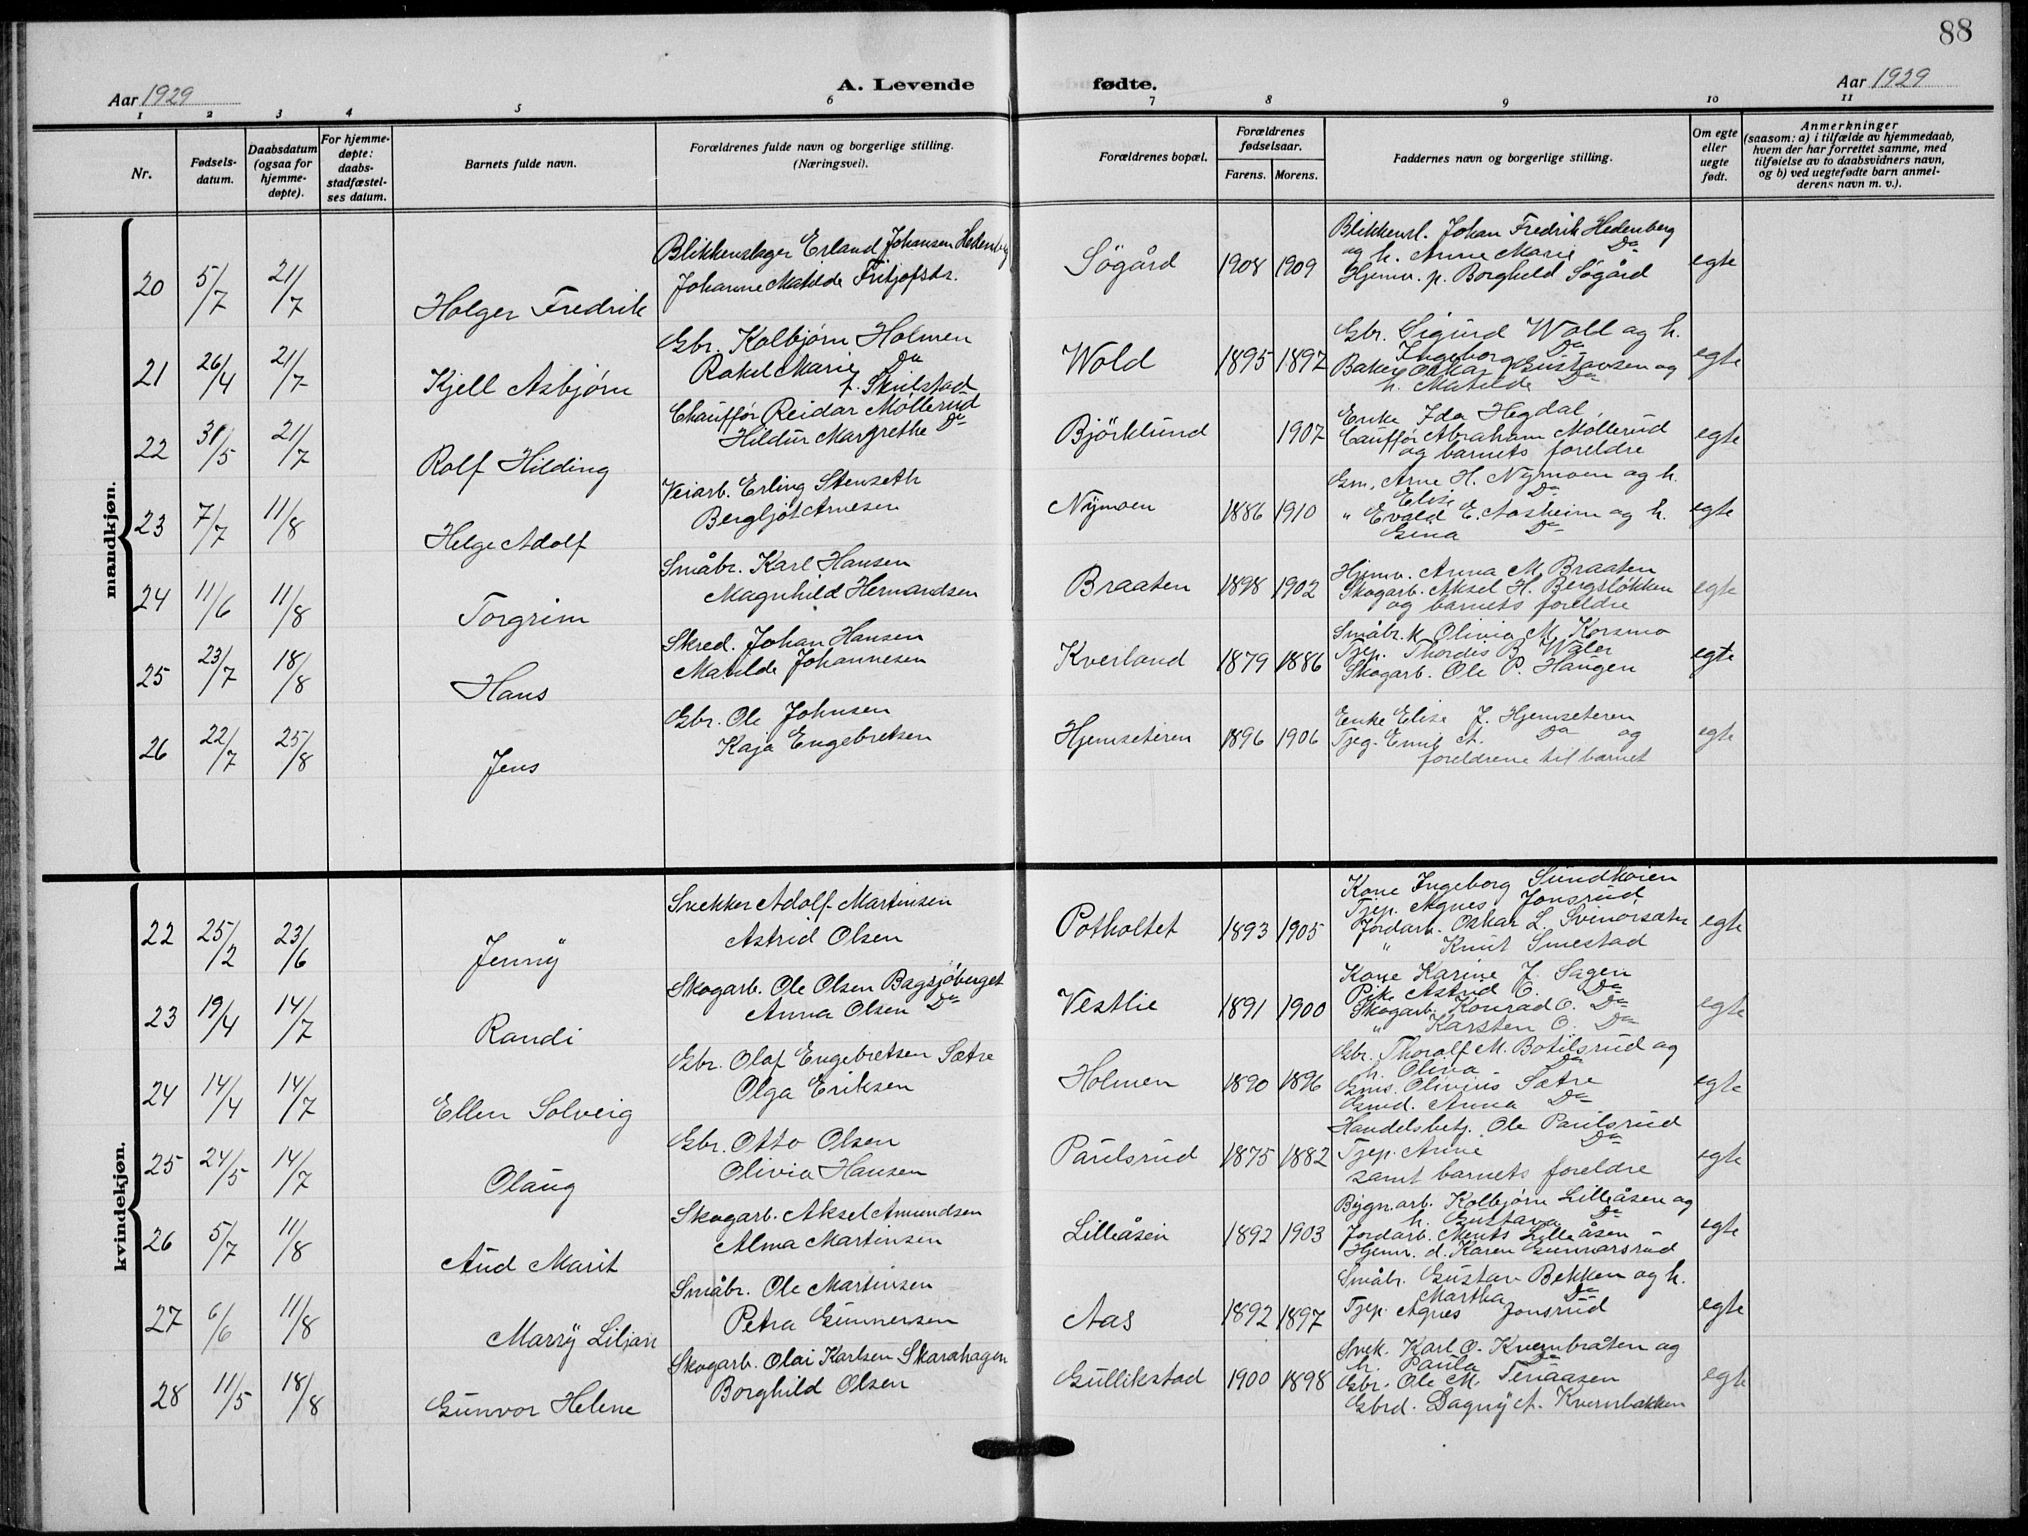 88
Aar 1929
A. Levende
fødte.
Aar 1929
1 2 3 4 5 6 7 8 9 10 11
Nr.
Fødsels-
datum.
Daabsdatum
(ogsaa for
hjemme-
døpte).
For hjemme-
døpte:
daabs-
stadfæstel-
ses datum.
Barnets fulde navn.
Forældrenes fulde navn og borgerlige stilling.
(Næringsvei).
Forældrenes bopæl.
Forældrenes
fødselsaar.
Farens. Morens.
Faddernes navn og borgerlige stilling.
Om egte
eller
uegte
født.
Anmerkninger
(saasom: a) i tilfælde av hjemmedaab,
hvem der har forrettet samme, med
tilføielse av to daabsvidners navn,
og b) ved uegtefødte barn anmel-
derens navn m. v.).
mandkjøn.
20 5/7 21/7 Holger Fredrik
Blikkenslager Erland Johansen Hedenberg
Johanne Matilde Fritjofsdr.
Søgård 1908 1909
Blikkensl. Johan Fredrik Hedenberg
og h. Anne Marie Do
Hjemv. p. Borghild Søgård
egte
21 26/4 21/7 Kjell Asbjørn
Gbr. Kolbjørn Holmen
Rakel Marie Do
f. Skulstad
Wold 1895 1892
Gbr. Sigurd Woll og h.
Ingeborg Do
Baker Oskar Gustavsen og
h. Matilde Do
egte
22 31/5 21/7 Rolf Hilding
Chauffør Reidar Møllerud
Hildur Margrethe Do
Bjørklund 1907
Enke Ida Hegdal
Cauffør Abraham Møllerud
og barnets foreldre
egte
23 7/7 11/8 Helge Adolf
Veiarb. Erling Stenseth
Bergljot Arnesen
Nymoen 1886 1910
Gm. Arne H. Nymoen og h.
Elise Do
" Evald E. Aasheim og h.
Gina Do
egte
24 11/6 11/8 Torgrim
Småbr. Karl Hansen
Magnhild Hermandsen
Braaten 1898 1902
Hjemv. Anna M. Braaten
Skogarb. Aksel H. Bergsløkken
og barnets foreldre
egte
25 23/7 18/8 Hans
Skred. Johan Hansen
Matilde Johannesen
Kverland 1879 1886
Småbr. k Olivia M. Korsmo
Tjep. Thordis B. Waler
Skogarb. Ole P. Haugen
egte
26 22/7 25/8 Jens
Gbr. Ole Johnsen
Kaja Engebretsen
Hjemseteren 1896 1906
Enke Elise J. Hjemseteren
Tjeg. Emil A. Do og
foreldrene til barnet
egte
kvindekjøn.
22 25/2 23/6 Jenny
Snekker Adolf Martinsen
Astrid Olsen
Potholtet 1893 1905
Kone Ingeborg Sundkøien
Tjep. Agnes Jonsrud
Jordarb. Oskar L. Svenorsæter
" Knut Smestad
egte
23 19/4 14/7 Randi
Skogarb. Ole Olsen Bagsjøberget
Anna Olsen Do
Vestlie 1891 1900
Kone Karine J. Sagen
Pike Astrid O. Do
Skogarb. Konrad O. Do
" Karsten O. Do
egte
24 14/4 14/7 Ellen Solveig
Gbr. Olaf Engebretsen Sætre
Olga Eriksen
Holmen 1890 1896
Gbr. Thoralf M. Botilsrud og
h. Oliva Do
Gms. Olivius Sætre
Gmd. Anna Do
egte
25 24/5 14/7 Olaug
Gbr. Otto Olsen
Olivia Hansen
Paulsrud 1875 1882
Handelsbetj. Ole Paulsrud
Tjep. Anne Do
samt barnets foreldre
egte
26 5/7 11/8 Aud Marit
Skogarb. Aksel Amundsen
Alma Martinsen
Lilleåsen 1892 1903
Bygn.arb. Kolbjørn Lilleåsen og
h. Gustava Do
Jordarb. Ments Lilleåsen
Hjemv. d. Karen Gunnarsrud
egte
27 6/6 11/8 Marry Liljan
Småbr. Ole Martinsen
Petra Gunnersen
Aas 1892 1897
Småbr. Gustav Bekken og h.
Martha Do
Tjep. Agnes Jonsrud
egte
28 11/5 18/8 Gunvor Helene
Skogarb. Olai Karlsen Skarahagen
Borghild Olsen
Gullikstad 1900 1898
Snek. Karl O. Kvernbråten og
h. Paula Do
Gbr. Ole M. Teriaasen
Gbrd. Dagny A. Kvernbakken
egte